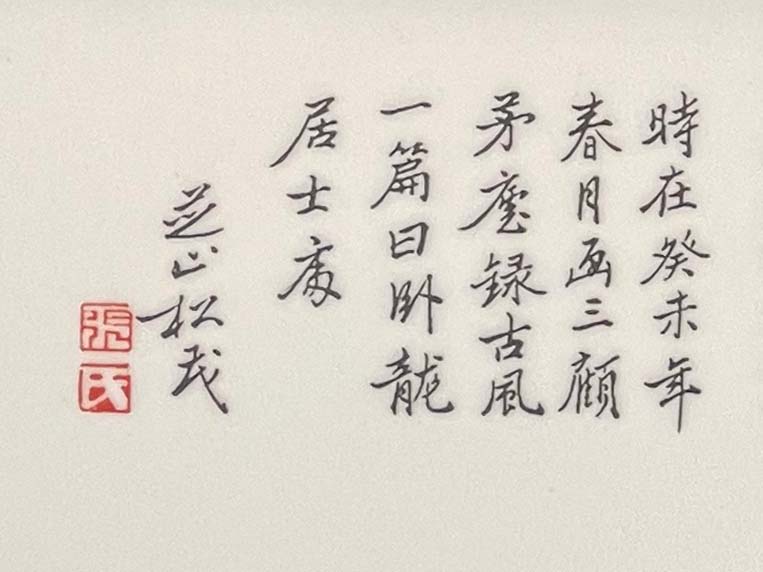 時在癸未年
春月画三顧
茅廬録古風
一篇曰卧龍
居士處
芝山松茂
張氏